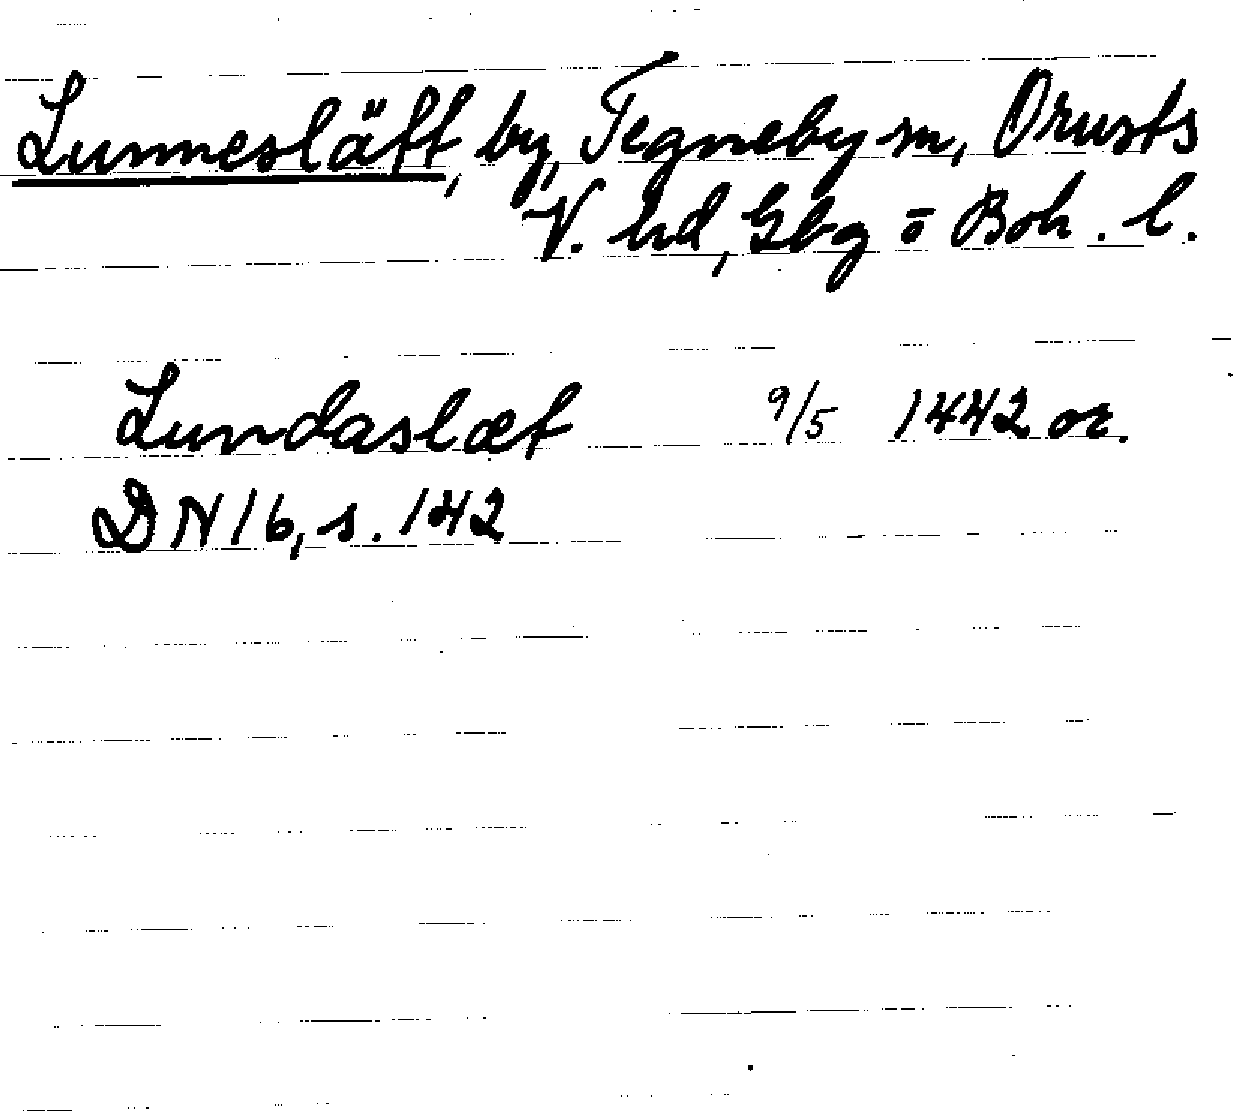 Lunneslätt, by, Tegneby sn, Orusts
V. hd, Gbg o Boh. l.
Lundaslæt 9/5 1442 or.
DN 16, s. 142